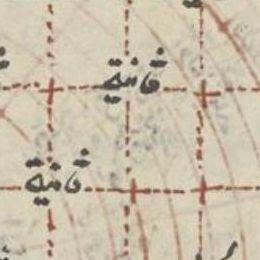 ثانية
ثانية